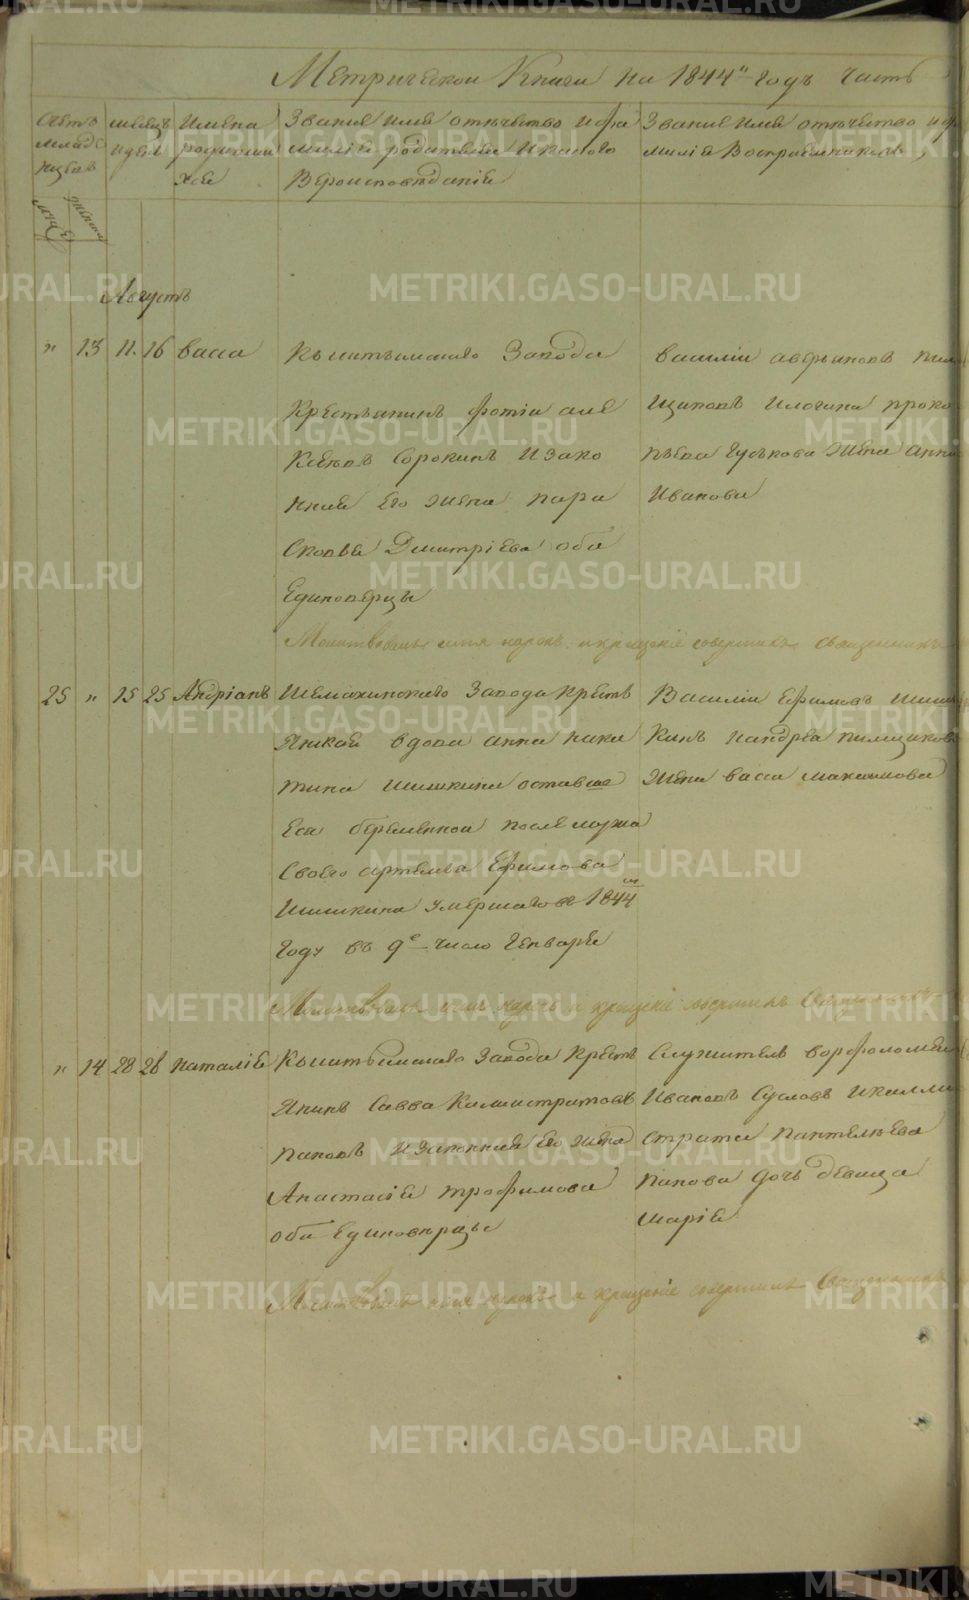 Метрической Книги на 1844й Годъ часть
Счетъ младенцевъ
месяцъ и день
Имена родившихся
Званiе имя отечество и фамилiя родителей и какого Вероисповеданiя
Званiе имя отечество и фамилiя Воспрiемниковъ
Августъ
" 13 11. 16 васса
Кыштымскаго Завода
Крестьянинъ фотiи але
Ксеевъ Сорокинъ И Зако
нная Его жена пара
Сковья Дмитрiева оба
Единоверцы
василiи аверьяновъ пил
Щиковъ
Иванова
Молитвовалъ имя нарекъ и крещенiе совершилъ священникъ
25 " 25 25 Андрiанъ
Шемахинскаго Завода Крестъ
Янская вдова анна ники
тина шишкина оставше
Еся беременной после мужа
Своего артемья Ефимова
Шишкина умершаго въ 1844м
Году въ 9е число Генваря
Василiи Ефимовъ шиш
Кинъ Иандрея пилщикова
Жена васса максимова
Молитвовалъ имя нарекъ и крещенiе совершилъ Священникъ
" 14 28 28 наталiя
Кыштымскаго Завода Крестъ
Янинъ Савва Калистратовъ
пановъ И Законная Его жена
Анастасiя трофимова
оба Единоверцы
Служитель ворфоломеи
Ивановъ Сусловъ Икалли
страта пантелеева
панова дочь девица
марiя
Молитвовалъ имя нарекъ и крещенiе совершилъ Священникъ
METRIKI.GASO-URAL.RU